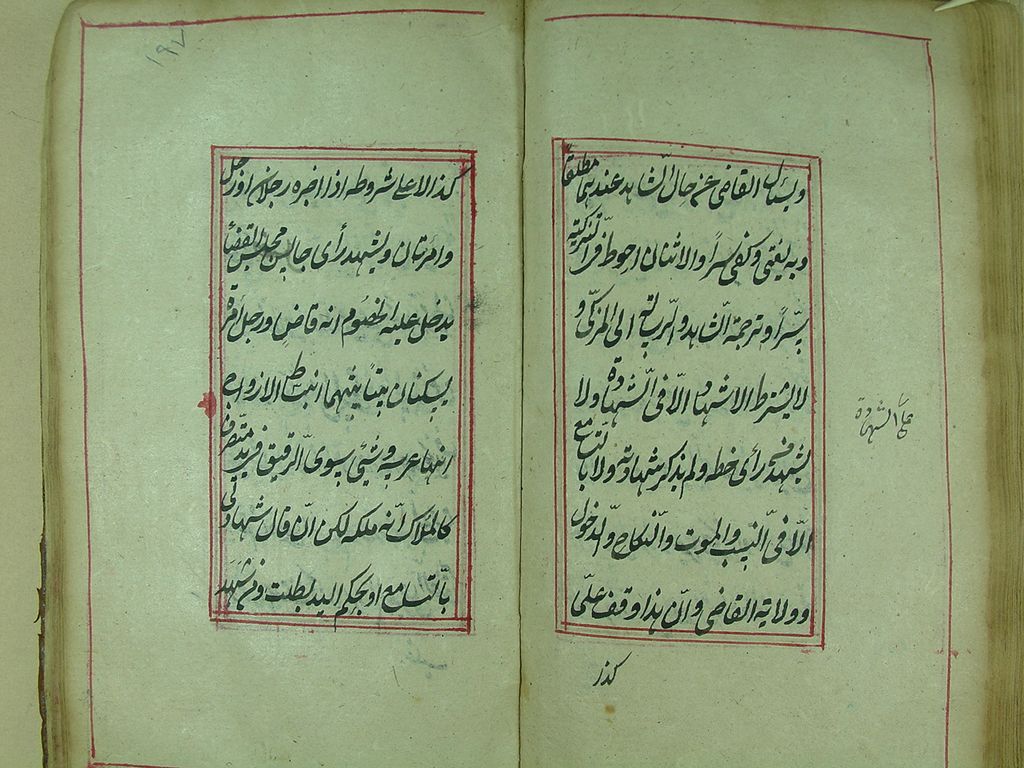 ويسئل القاضي عن حال الشاهد عندهما مطلقاً
وبه يفتى وكفى سراً والاثنان احوط في التزكية
سراً وترجمة الشاهد والرسالة الى المزكّى و
لا يشترط الاشهاد الّا فى الشهادة ولا
على الشهادة
يشهد من رأى خطه ولم يذكر شهادته ولا بالتسامع
الّا فى النسب والموت والنكاح والدخول
وولاية القاضي وانّ هذا وقف علىّ
كذا
١٩٧
كذا لا على شروطه اذا اخبره رجلان او رجل
وامرتان ويشهد رأى جالس مجلس القضا
يدخل عليه الخصوم انه قاض ورجل امرة
يسكنان بيتاً بينهما انبساط الازواج
انها عرسه وشئ سوى الرقيق فى يد متصرف
كالملاك انّه ملكه لكن انّ قال شهادتى
بالتسامع او بحكم اليد بطلت ومن شهد